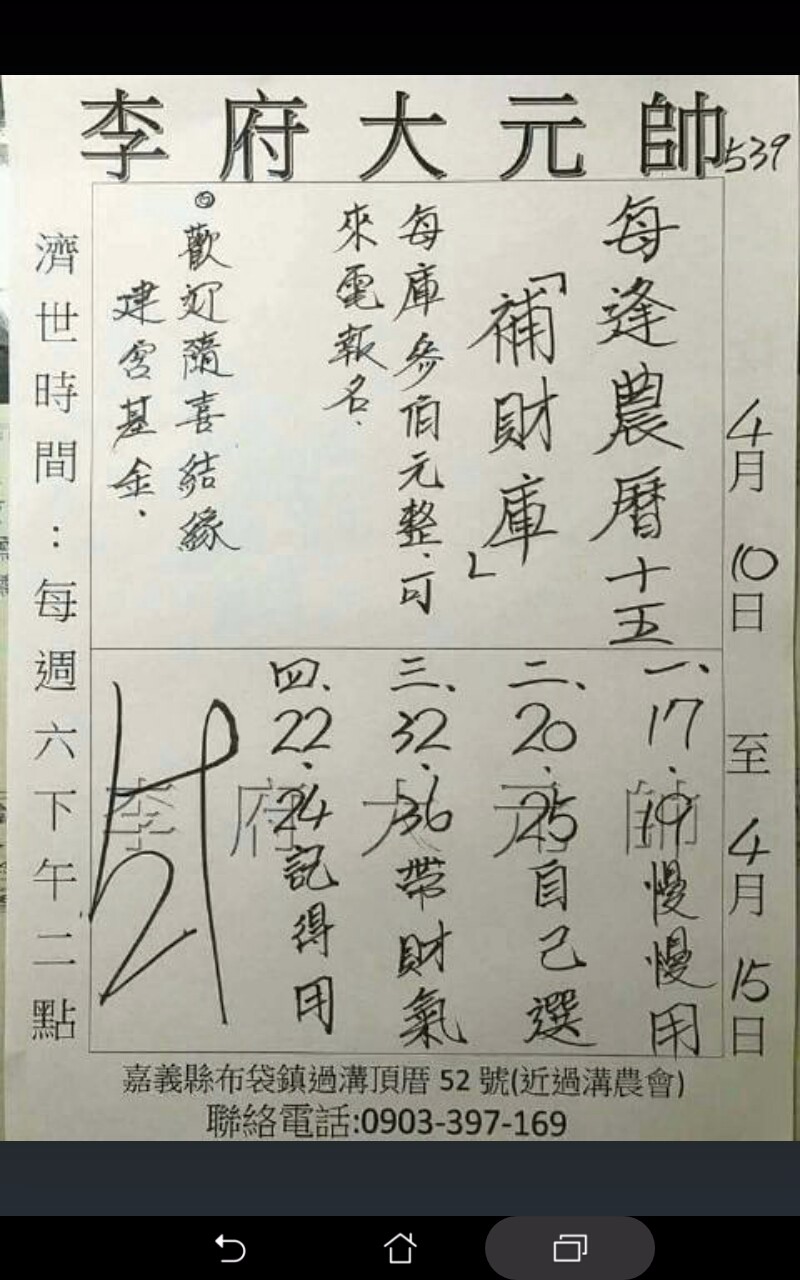 李府大元帥
539
4月10日至4月15日
每逢農曆十五
「補財庫」
每庫參佰元整.可
來電報名.
◎歡迎隨喜結緣
建宮基金.
一、17.19慢慢用
二、20.25自己選
三、32.36帶財氣
四、22.24記得用
李府大元帥
濟世時間:每週六下午二點
嘉義縣布袋鎮過溝頂厝52號(近過溝農會)
聯絡電話:0903-397-169